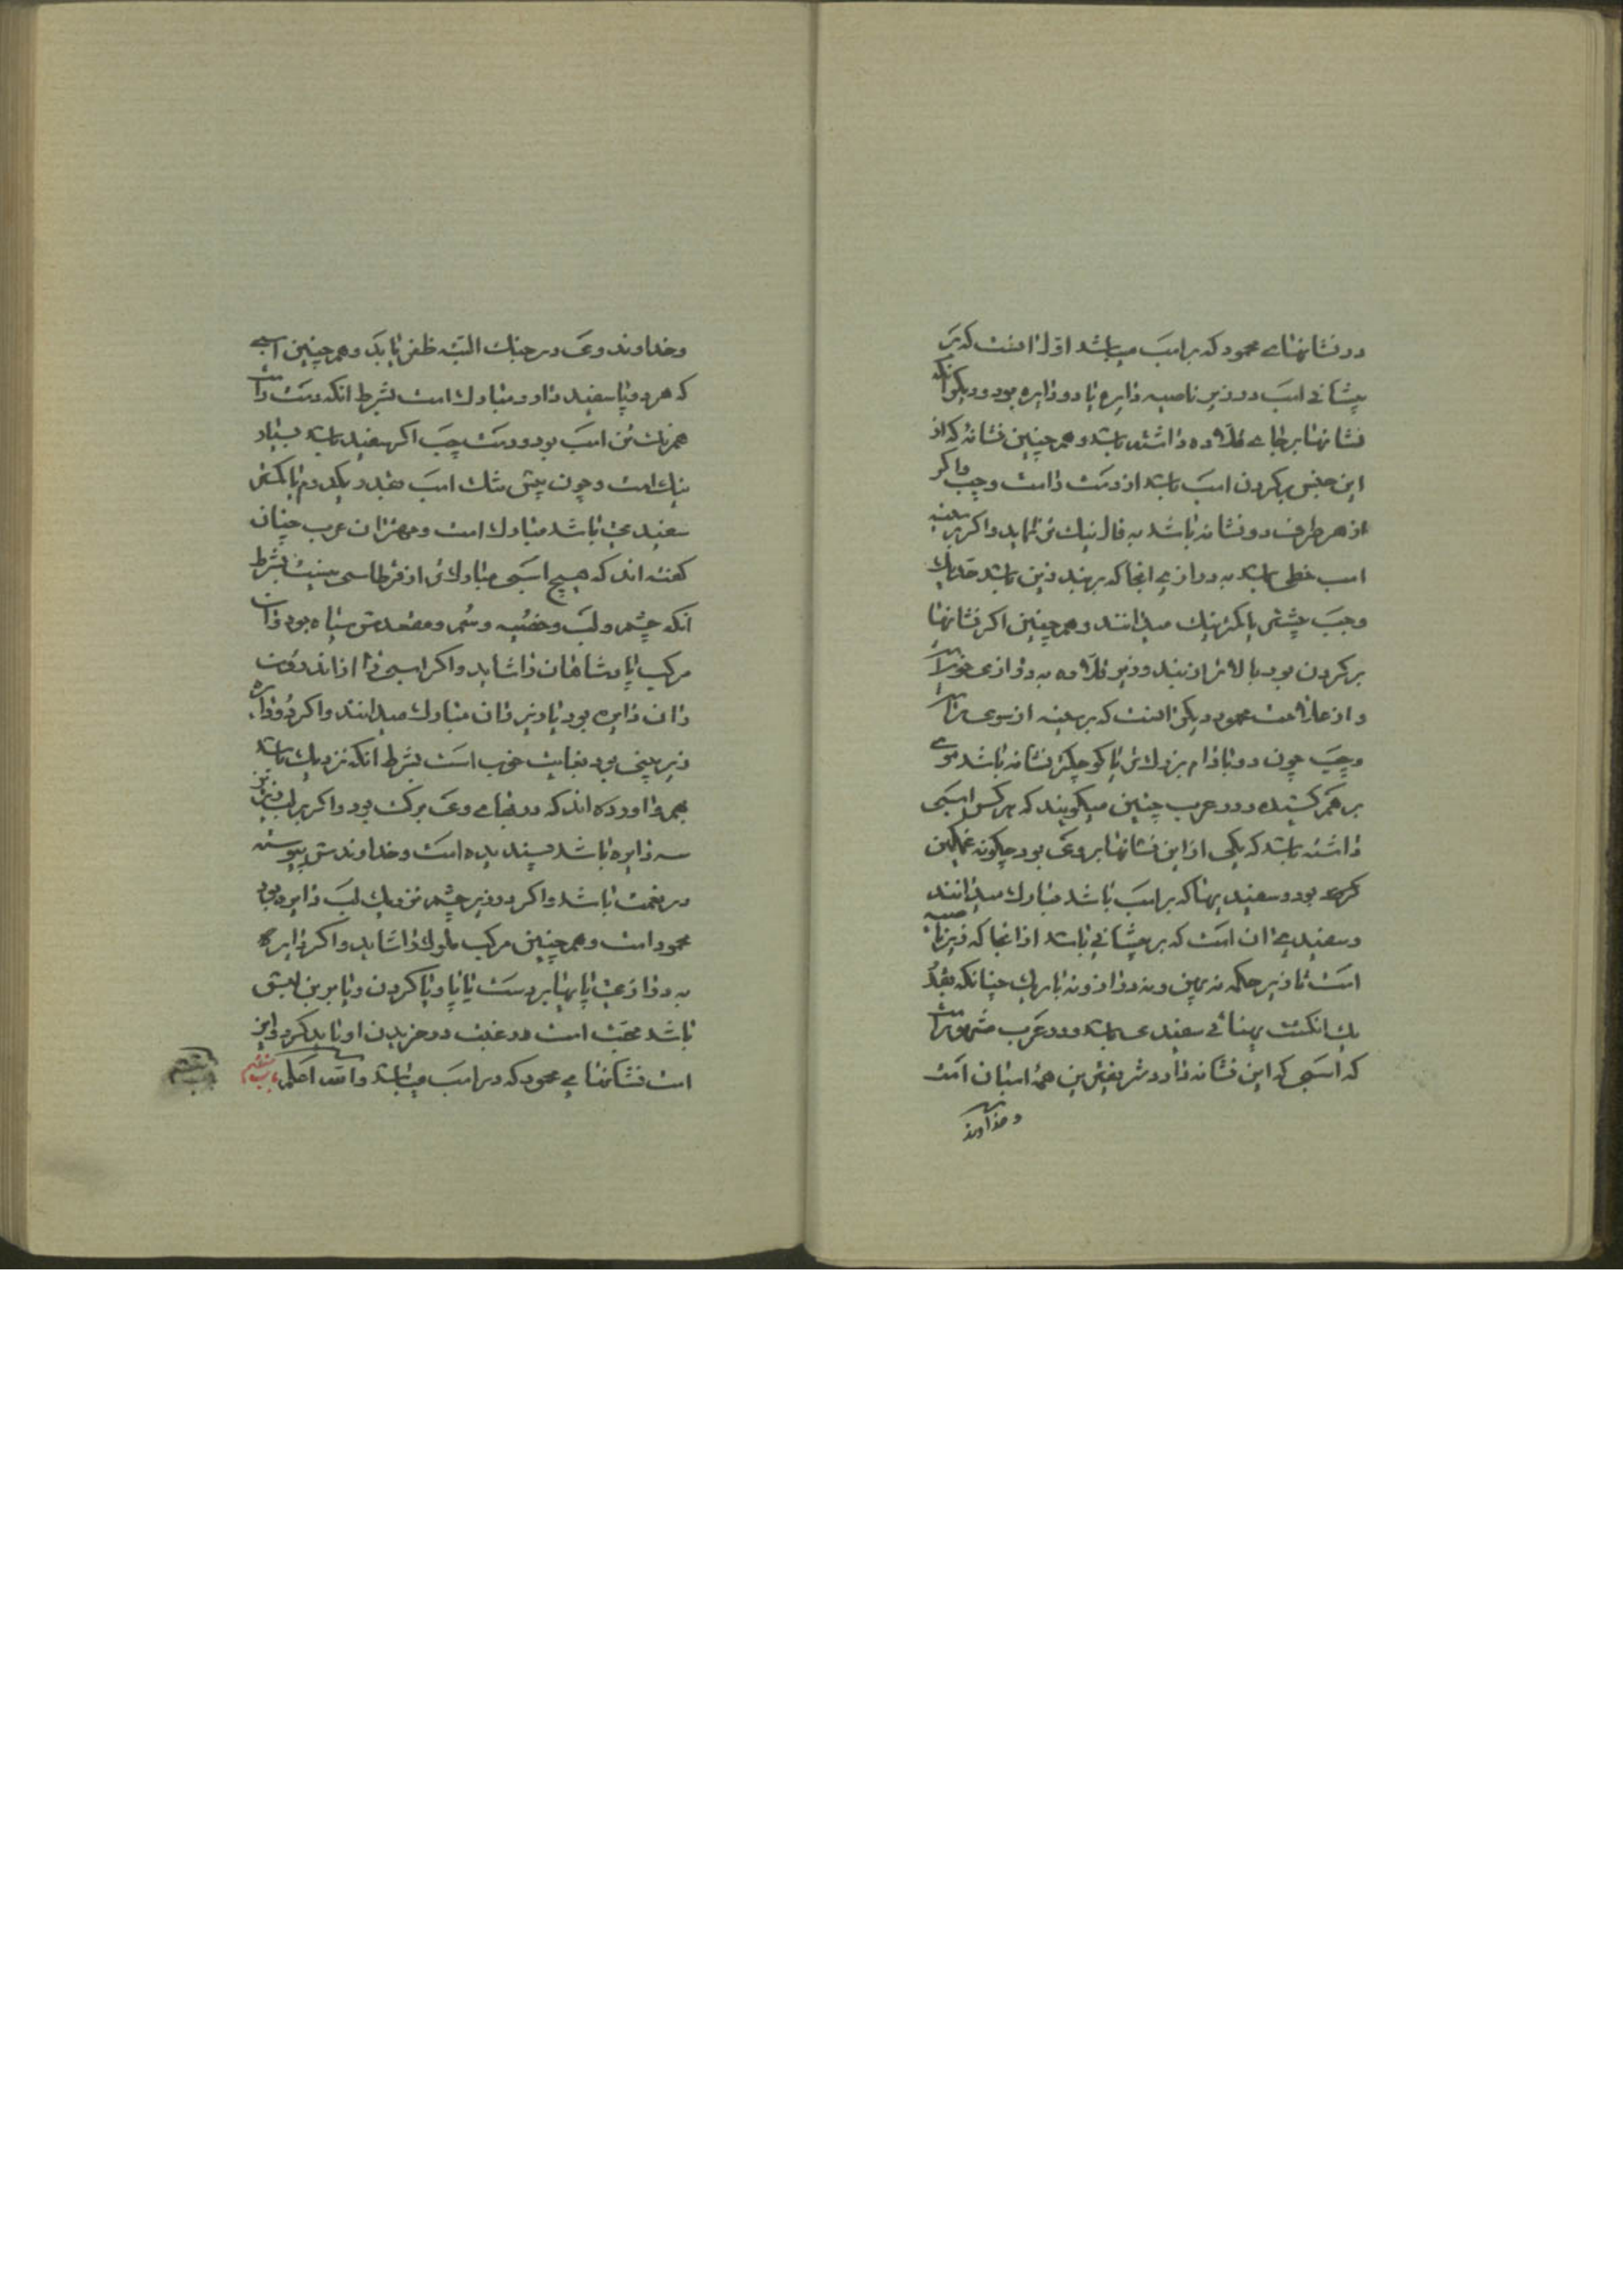 در نشانهای محمود که بر اسب میباشد اول انست که بر
پیشانی اسب در زیر ناصیه دایره یا دو دایره بود و دیگر آنکه
نشانها بر جای قلاده داشته باشد و همچنین نشانهٔ که از
این جنس بر گردن اسب باشد از دست راست و چپ و اگر
از هر طرف دو نشانه باشد به فال نیک تر نماید و اگر بر سینه
اسب خطی باشد به درازی انجا که بر بند زین باشد
و چپ چشمش یا نیک میدانند و همچنین اگر نشانها
بر گردن بود بالاتر از بند و زیر قلاده به درازی
و از علامت محمود دیگر انست که بر سینه از سوی راست
و چپ چون دو بادام بزرگ تر یا کوچکتر نشانه باشد موی
بر هم کشیده و در عرب چنین میگویند که هر کس اسبی
داشته باشد که یکی از این نشانها بر وی بود چگونه غمگین
گردد بود و سفیدیها که بر اسب باشد مبارک میدانند
و سفیدی ان است که بر پیشانی باشد از انجا که زیر ناصیه
است تا زیر حکمه نه پهن و نه دراز و نه باریک چنانکه بقدر
یک انگشت پهنائی سفیدی باشد و در عرب مشهور است
که اسبی که این نشانه دارد شریفترین همهٔ اسبان است
و خداوند
و خداوند وی در جنگ البته ظفر یابد و همچنین اسبی
که هر دو پا سفید دارد مبارک است بشرط انکه دست راست
همرنگ تن اسب بود و دست چپ اگر سفید باشد بسیار
نیک است و چون پیش اسب سفید و یکدم یا کمتر
سفیدی باشد مبارک است و مهتران عرب چنان
گفته اند که هیچ اسبی مبارک تر از قرطاسی نیست بشرط
انکه چشم و لب و خصیه و سم و مقعدش سیاه بود و ان
مرکب پادشاهان را شاید و اگر اسبی را از اندرون
ران دایره بود یا زیر ران مبارک میدانند و اگر دو دایره
زیر بینی بود بغایت خوب است بشرط انکه نزدیک باشد
بهم و اورده اند که در بهای وی برکت بود و اگر بر لب زیرین
سه دایره باشد پسندیده است و خداوندش پیوسته
در نعمت باشد و اگر در زیر چشم نزدیک لب دایره بود
محمود است و همچنین مرکب ملوک را شاید و اگر دایره
به درازی یا پهنا بر دست یا پا و یا گردن و یا بر بن
باشد مجنب است رغبت در خریدن او باید کرد این
است نشانهای محمود که در اسب میباشد والله اعلم باب ششم